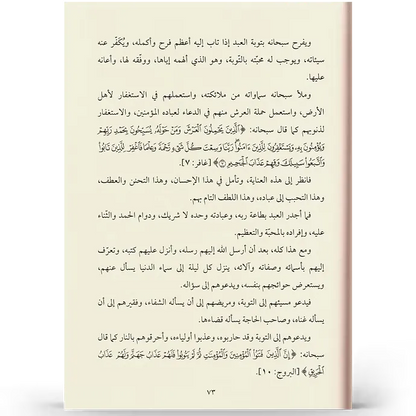 ويفرح سبحانه بتوبة العبد إذا تاب إليه أعظم فرح وأكمله، ويُكَفّر عنه
سيئاته، ويوجب له محبّته بالتّوبة، وهو الذي ألهمه إياها، ووفّقه لها، وأعانه
عليها.
وملأ سبحانه سماواته من ملائكته، واستعملهم في الاستغفار لأهل
الأرض، واستعمل حملة العرش منهم في الدعاء لعباده المؤمنين، والاستغفار
لذنوبهم كما قال سبحانه: ﴿ٱلَّذِينَ يَحۡمِلُونَ ٱلۡعَرۡشَ وَمَنۡ حَوۡلَهُۥ يُسَبِّحُونَ بِحَمۡدِ رَبِّهِمۡ
وَيُؤۡمِنُونَ بِهِۦ وَيَسۡتَغۡفِرُونَ لِلَّذِينَ ءَامَنُواْۖ رَبَّنَا وَسِعۡتَ كُلَّ شَيۡءٖ رَّحۡمَةٗ وَعِلۡمٗا فَٱغۡفِرۡ لِلَّذِينَ تَابُواْ
وَٱتَّبَعُواْ سَبِيلَكَ وَقِهِمۡ عَذَابَ ٱلۡجَحِيمِ ٧﴾ [غافر: ٧].
فانظر إلى هذه العناية، وتأمل في هذا الإحسان، وهذا التحنن والعطف،
وهذا التحبب إلى عباده، وهذا اللطف التام بهم.
فما أجدر العبد بطاعة ربه، وعبادته وحده لا شريك، ودوام الحمد والثّناء
عليه، وإفراده بالمحبّة والتعظيم.
ومع هذا كله، بعد أن أرسل الله إليهم رسله، وأنزل عليهم كتبه، وتعرّف
إليهم بأسمائه وصفاته وآلائه، ينزل كل ليلة إلى سماء الدنيا يسأل عنهم،
ويستعرض حوائجهم بنفسه، ويدعوهم إلى سؤاله.
فيدعو مسيئهم إلى التوبة، ومريضهم إلى أن يسأله الشفاء، وفقيرهم إلى أن
يسأله غناه، وصاحب الحاجة يسأله قضاءها.
ويدعوهم إلى التوبة وقد حاربوه، وعذبوا أولياءه، وأحرقوهم بالنار كما قال
سبحانه: ﴿إِنَّ ٱلَّذِينَ فَتَنُواْ ٱلۡمُؤۡمِنِينَ وَٱلۡمُؤۡمِنَٰتِ ثُمَّ لَمۡ يَتُوبُواْ فَلَهُمۡ عَذَابُ جَهَنَّمَ وَلَهُمۡ عَذَابُ
ٱلۡحَرِيقِ﴾ [البروج: ١٠].
٧٣